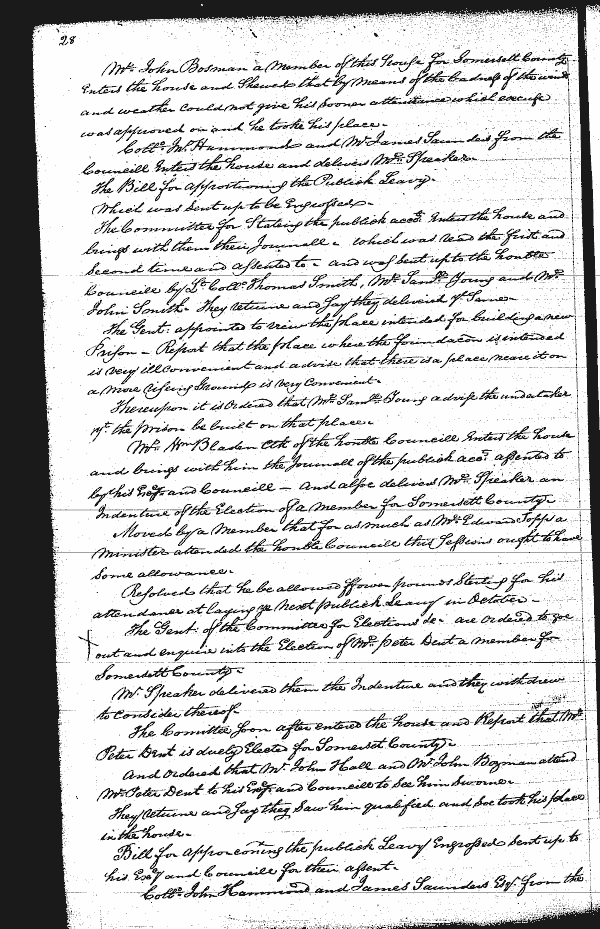 28
Mr. John Bosman a Member of this House for Somersett County
Enters the house and Shewes that by means of the badness of the wind
and weather could not give his sooner attendance which excuse
was approved on and he tooke his place.
Collo. Jno. Hammond and Mr. James Saunders from the
Councill Enters the house and delivers Mr. Speaker
The Bill for apportioning the Publick Leavy.
Which was sent up to be Engrossed.
The Committee for Stateing the publick accots. Enters the house and
brings with them their Journall. which was read the first and
Second time and assented to. and was sent up to the honble
Councill by Lt. Collo. Thomas Smith, Mr. Samll. Young and Mr.
John Smith. They returne and say they deliverd ye. same.
The Gent. appointed to view the place intended for building a new
Prison - Report that the place where the foundacon is intended
is very illconvenient and advise that there is a place neare it on
a more riseing Ground is very Convenient.
Thereupon it is Ordered that Mr. Samll. Young advise the undertaker
yt. the prison be built on that place.
Mr. Wm. Bladen Clk of the honble Councill Enters the house
and brings with him the Journall of the publick accots. assented to
by his Exqy and Councill - And also delivers Mr. Speaker an
Indenture of the Election of a member for Somersett County.
Moved by a Member that for as much as Mr. Edward Topps a
Minister attended the honble Councill this Sessions ought to have
some allowance.
Resolved that he be allowed ffower pounds Sterling for his
attendance at laying ye next publick Leavy in October.
The Gent. of the Committee for Elections &c. are ordered to goe
out and enquire into the Election of Mr. Peter Dent a member for
Somersett County.
Mr. Speaker delivered them the Indenture and they withdrew
to consider thereof.
The Comittee soon after entered the house and Report that Mr.
Peter Dent is duely Elected for Somerset County.
And ordered that Mr. John Hall and Mr. John Bozman attend
Mr. Peter Dent to his Exqy and Councill to See him Sworne.
They returne and Say they Saw him qualified and soe took his place
in the house.
Bill for Apporconing the publick Leavy Engrossed sent up to
his Exqy and Councill for their assent.
Collo. John Hammond and James Saunders Esqr. from the